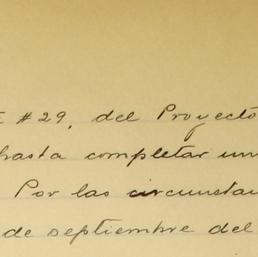 #29, del Proyecto
hasta completar un
Por las circunsta
de septiembre del